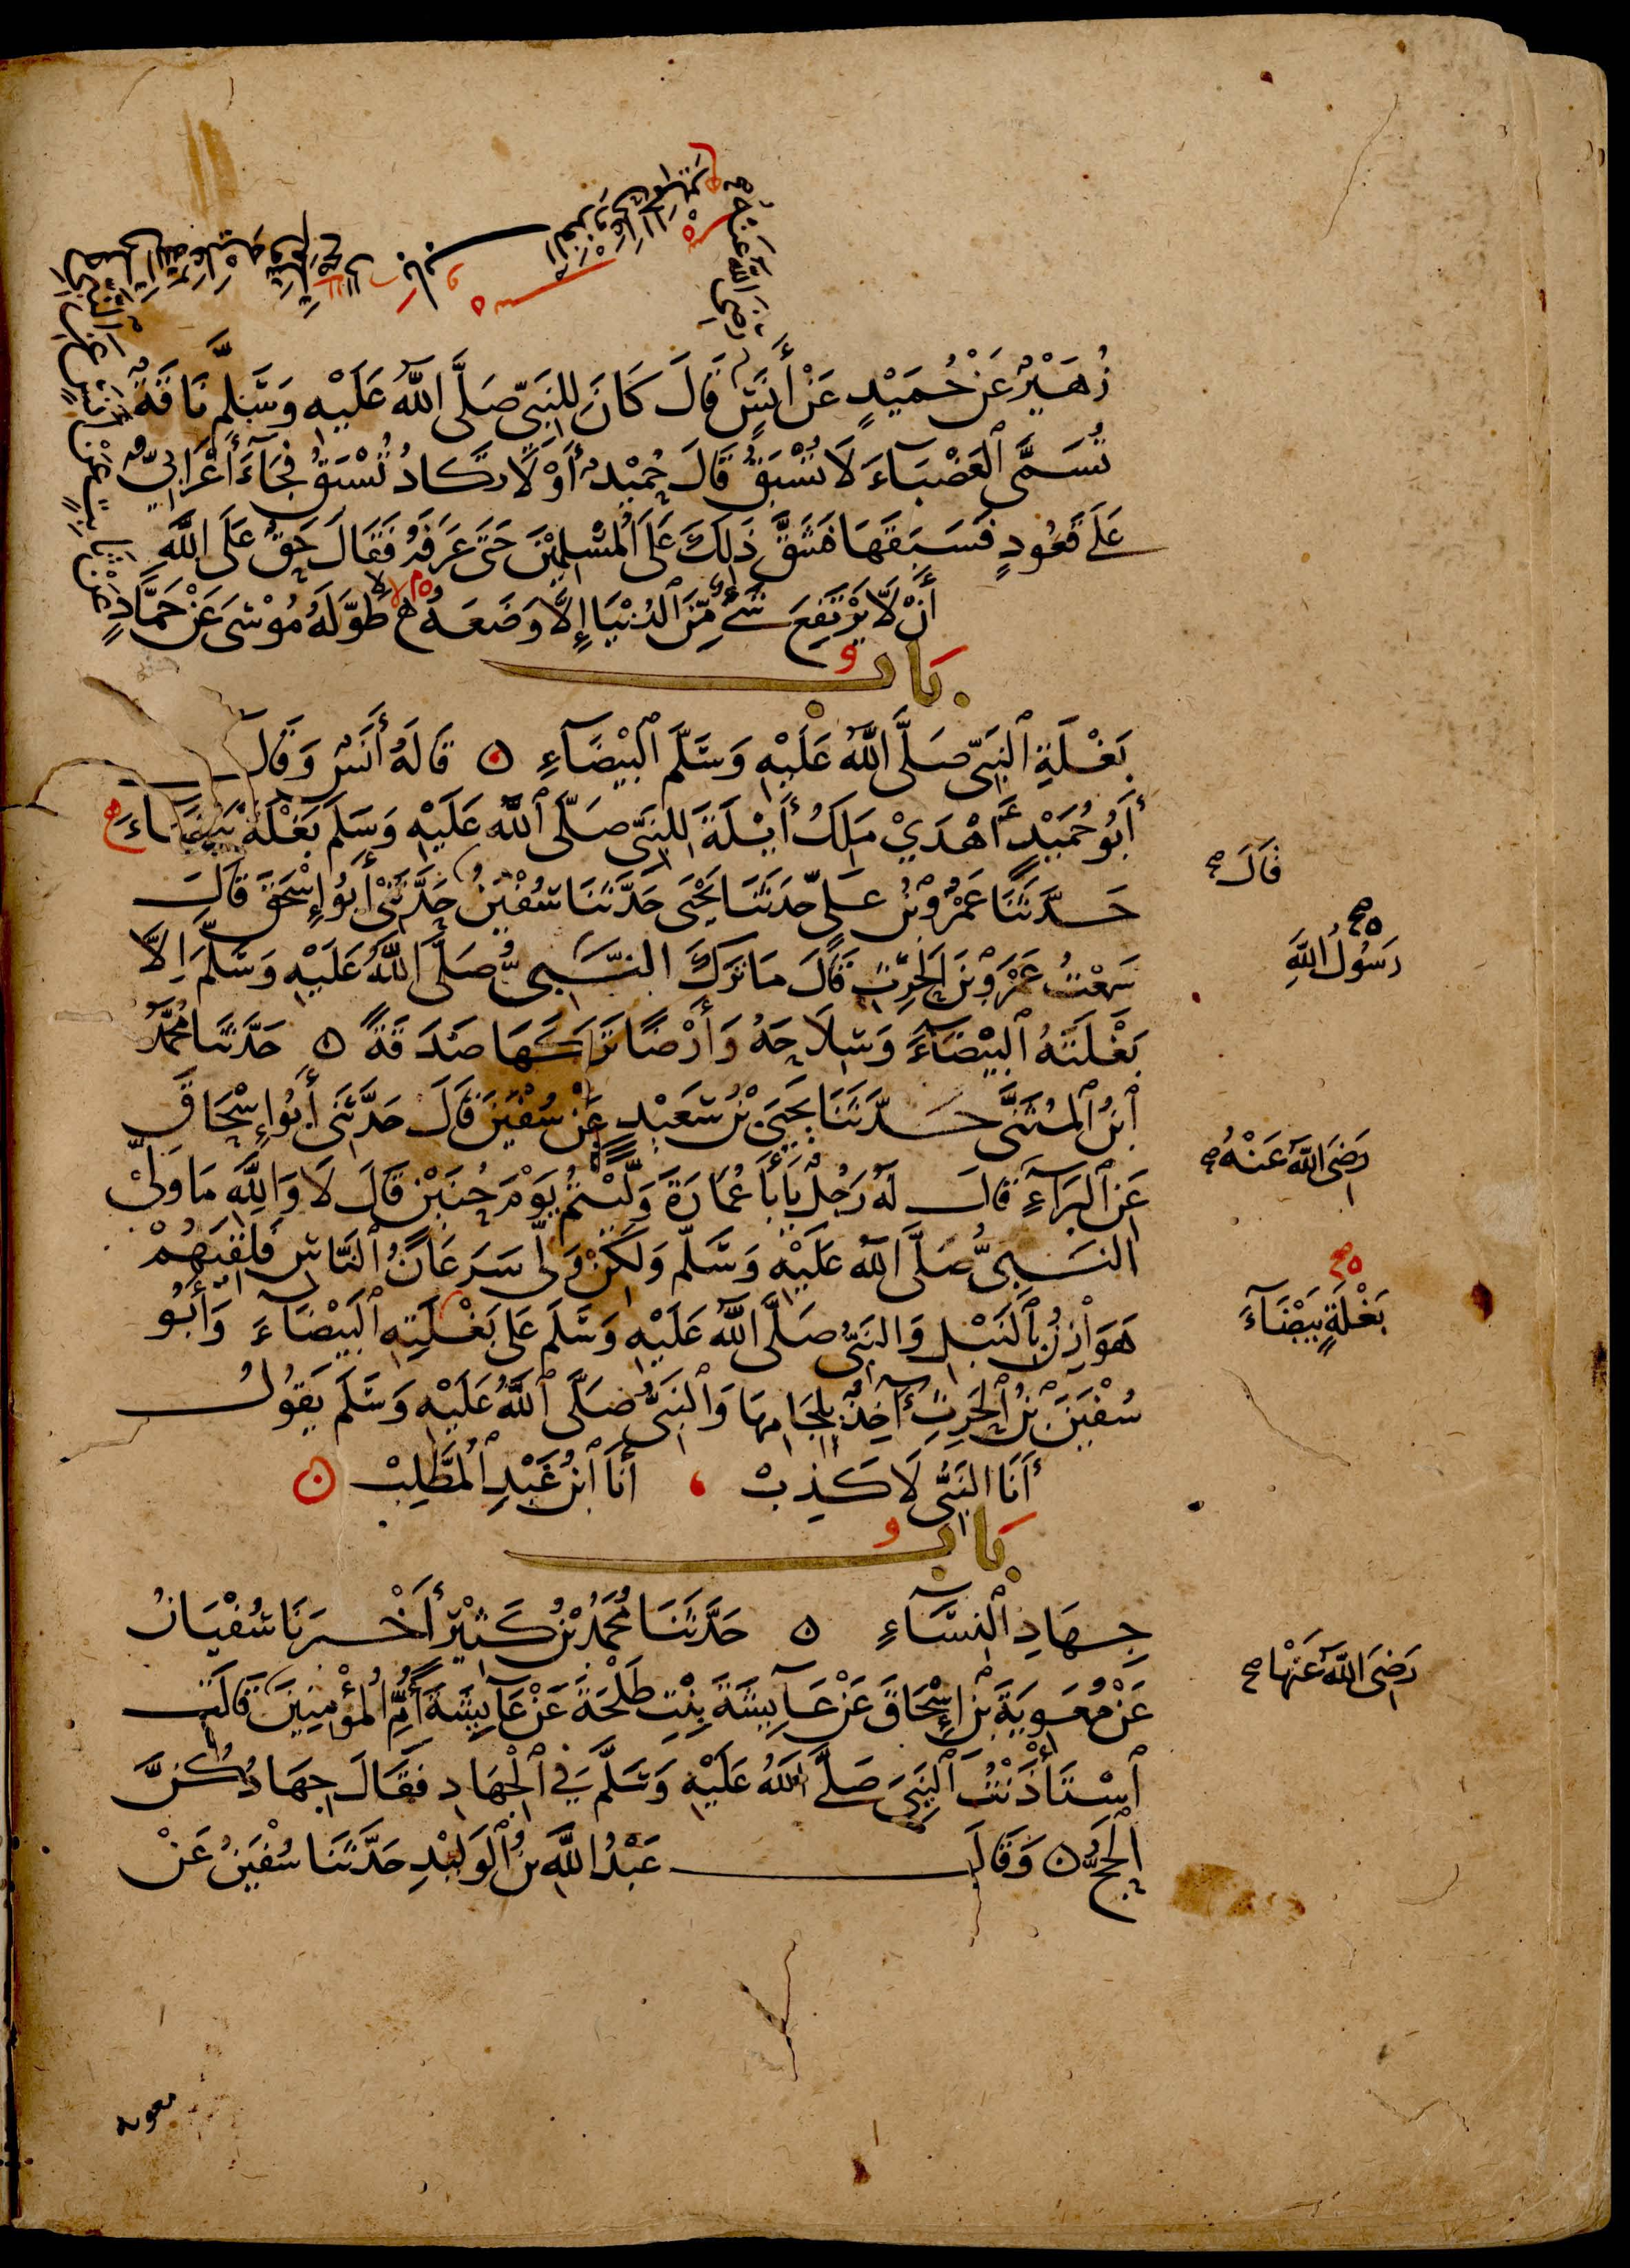 رضي الله عنه
زُهَيْرٌ عَنْ حُمَيْدٍ عَنْ أَنَسٍ قَالَ كَانَ لِلنَّبِيِّ صَلَّى اللَّهُ عَلَيْهِ وَسَلَّمَ نَاقَةٌ
تُسَمَّى الْعَضْبَاءَ لَا تُسْبَقُ قَالَ حُمَيْدٌ أَوْ لَا تَكَادُ تُسْبَقُ فَجَاءَ أَعْرَابِيٌّ
عَلَى قَعُودٍ فَسَبَقَهَا فَشَقَّ ذَلِكَ عَلَى الْمُسْلِمِينَ حَتَّى عَرَفَهُ فَقَالَ حَقٌّ عَلَى اللَّهِ
أَنْ لَّا يَرْتَفِعَ شَيْءٌ مِّنَ الدُّنْيَا إِلَّا وَضَعَهُ طَوَّلَهُ مُوْسَى عَنْ حَمَّادٍ
عَنْ ثَابِتٍ عَنْ أَنَسٍ عَنِ النَّبِيِّ صلى الله عليه وسلم
بَابُ
بَغْلَةِ النَّبِيِّ صَلَّى اللَّهُ عَلَيْهِ وَسَلَّمَ الْبَيْضَاءِ ۞ قَالَهُ أَنَسٌ وَقَالَ
أَبُو حُمَيْدٍ أَهْدَى مَلِكُ أَيْلَةَ لِلنَّبِيِّ صَلَّى اللَّهُ عَلَيْهِ وَسَلَّمَ بَغْلَةً بَيْضَاءَ
حَدَّثَنَا عَمْرُو بْنُ عَلِيٍّ حَدَّثَنَا يَحْيَى حَدَّثَنَا سُفْيَنُ حَدَّثَنِي أَبُو إِسْحَقَ قَالَ
قَالَ
سَمِعْتُ عَمْرَو بْنَ الْحَرِثِ قَالَ مَا تَرَكَ النَّبِيُّ صَلَّى اللَّهُ عَلَيْهِ وَسَلَّمَ إِلَّا
رَسُولُ اللَّهِ
بَغْلَتَهُ الْبَيْضَاءَ وَسِلَاحَهُ وَأَرْضًا تَرَكَهَا صَدَقَةً ۞ حَدَّثَنَا مُحَمَّدُ
ابْنُ الْمُثَنَّى حَدَّثَنَا يَحْيَى بْنُ سَعِيْدٍ عَنْ سُفْيَنَ قَالَ حَدَّثَنِي أَبُو إِسْحَاقَ
عَنِ الْبَرَاءِ قَالَ لَهُ رَجُلٌ يَا أَبَا عُمَارَةَ وَلَّيْتُمْ يَوْمَ حُنَيْنٍ قَالَ لَا وَاللَّهِ مَا وَلَّى
رَضِيَ اللَّهُ عَنْهُ
النَّبِيُّ صَلَّى اللَّهُ عَلَيْهِ وَسَلَّمَ وَلَكِنْ وَلَّى سَرَعَانُ النَّاسِ فَلَقِيَهُمْ
هَوَازِنُ بِالنَّبْلِ وَالنَّبِيُّ صَلَّى اللَّهُ عَلَيْهِ وَسَلَّمَ عَلَى بَغْلَتِهِ الْبَيْضَاءَ وَأَبُو
بَغْلَةٍ بَيْضَاءَ
سُفْيَنَ بْنُ الْحَرِثِ آخِذٌ بِلِجَامِهَا وَالنَّبِيُّ صَلَّى اللَّهُ عَلَيْهِ وَسَلَّمَ يَقُولُ
أَنَا النَّبِيُّ لَا كَذِبْ ، أَنَا ابْنُ عَبْدِ الْمُطَّلِبْ ۞
بَابُ
جِهَادِ النِّسَاءِ ۞ حَدَّثَنَا مُحَمَّدُ بْنُ كَثِيْرٍ أَخْبَرَنَا سُفْيَانُ
عَنْ مُعَوِيَةَ بْنِ إِسْحَاقَ عَنْ عَائِشَةَ بِنْتِ طَلْحَةَ عَنْ عَائِشَةَ أُمِّ الْمُؤْمِنِينَ قَالَتِ
رَضِيَ اللَّهُ عَنْهَا
اسْتَأْذَنْتُ النَّبِيَّ صَلَّى اللَّهُ عَلَيْهِ وَسَلَّمَ فِي الْجِهَادِ فَقَالَ جِهَادُكُنَّ
الْحَجُّ ۞ وَقَالَ عَبْدُ اللَّهِ بْنُ الْوَلِيْدِ حَدَّثَنَا سُفْيَنُ عَنْ
معوية